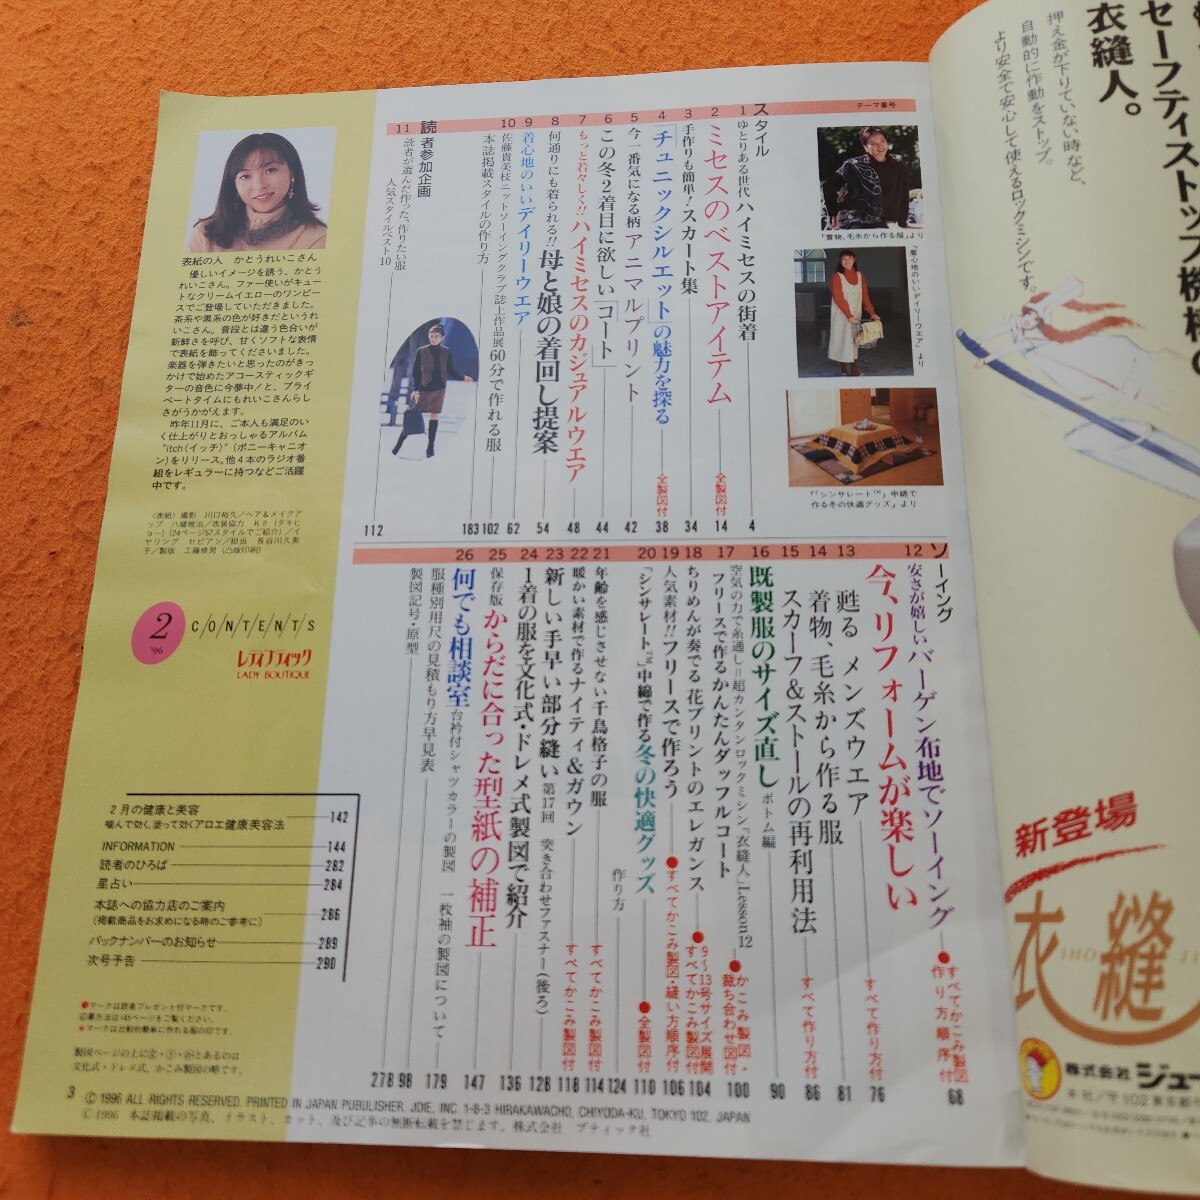 テーマ番号
スタイル
1 ゆとりある世代 ハイミセスの街着 4
2 ミセスのベストアイテム 全製図付 14
3 手作りも簡単！スカート集 34
4 「チュニックシルエット」の魅力を探る 全製図付 38
5 今一番気になる柄 アニマルプリント 42
6 この冬2着目に欲しい「コート」 44
7 もっと若々しく!! ハイミセスのカジュアルウエア 48
8 何通りにも着られる!! 母と娘の着回し提案 54
9 着心地のいいデイリーウエア 62
10 佐藤貴美枝ニットソーイングクラブ誌上作品展 60分で作れる服 102
本誌掲載スタイルの作り方 183
読者参加企画
11 読者が選んだ作った、作りたい服
人気スタイルベスト10 112
「着物、毛糸から作る服」より
「着心地のいいデイリーウエア」より
「「シンサレート™」中綿で
作る冬の快適グッズ」より
ソーイング
12 安さが嬉しいバーゲン布地でソーイング ●すべてかこみ製図・作り方順序付 68
今、リフォームが楽しい すべて作り方付 76
13 甦る メンズウエア 81
14 着物、毛糸から作る服 すべて作り方付 86
15 スカーフ&ストールの再利用法 90
16 既製服のサイズ直し ボトム編
空気の力で糸通し=超カンタンロックミシン「衣縫人」Lesson12 100
17 フリースで作るかんたんダッフルコート ●かこみ製図・裁ち合わせ図付
18 ちりめんが奏でる 花プリントのエレガンス ●9〜13号サイズ展開 すべてかこみ製図付 104
19 人気素材!!フリースで作ろう ●すべてかこみ製図・縫い方順序付 106
20 「シンサレート™」中綿で作る冬の快適グッズ ●全製図付 110
作り方 124
21 年齢を感じさせない千鳥格子の服 すべてかこみ製図付 114
22 暖かい素材で作るナイティ&ガウン すべてかこみ製図付 118
23 新しい手早い部分縫い 第17回 突き合わせファスナー(後ろ) 128
24 1着の服を文化式・ドレメ式製図で紹介 136
25 保存版 からだに合った型紙の補正 147
26 何でも相談室 台衿付シャツカラーの製図 一枚袖の製図について 179
服種別用尺の見積もり方早見表 98
製図記号・原型 278
表紙の人 かとうれいこさん
優しいイメージを誘う、かとう
れいこさん。ファー使いがキュー
トなクリームイエローのワンピー
スでご登場していただきました。
茶系や黒系の色が好きだというれ
いこさん。普段とは違う色合いが
新鮮さを呼び、甘くソフトな表情
で表紙を飾ってくださいました。
楽器を弾きたいと思ったのがきっ
かけで始めたアコースティックギ
ターの音色に今夢中！と、プライ
ベートタイムにもれいこさんらし
さがうかがえます。
昨年11月に、ご本人も満足のい
く仕上がりとおっしゃるアルバム
"itch(イッチ)"(ポニーキャニオ
ン)をリリース。他4本のラジオ番
組をレギュラーに持つなどご活躍
中です。
〈表紙〉撮影 川口裕久/ヘア&メイクア
ップ 八幡雅治/衣装協力 KⅡ(タキヒ
ョー)(24ページ57スタイルでご紹介)/イ
ヤリング セビアン/担当 長谷川久美
子/製版 工藤修男(凸版印刷)
2
'96
CONTENTS
レディブティック
LADY BOUTIQUE
2月の健康と美容
噛んで効く、塗って効くアロエ健康美容法 142
INFORMATION 144
読者のひろば 282
星占い 284
本誌への協力店のご案内
(掲載商品をお求めになる時のご参考に) 286
バックナンバーのお知らせ 289
次号予告 290
●マークは読者プレゼント付マークです。
応募方法は145ページをご覧ください。
★マークは比較的簡単に作れる服の印です。
製図ページの上に文・ド・かとあるのは
文化式・ドレメ式、かこみ製図の略です。
3
© 1996 ALL RIGHTS RESERVED. PRINTED IN JAPAN PUBULISHER, JDIE, INC. 1-8-3 HIRAKAWACHO, CHIYODA-KU, TOKYO 102, JAPAN
© 1996 本誌掲載の写真、イラスト、カット、及び記事の無断転載を禁じます。株式会社 ブティック社
セーフティストップ機構の
衣縫人。
押え金が下りていない時など、
自動的に作動をストップ。
より安全で安心して使えるロックミシンです。
新登場
衣縫
株式会社 ジュー